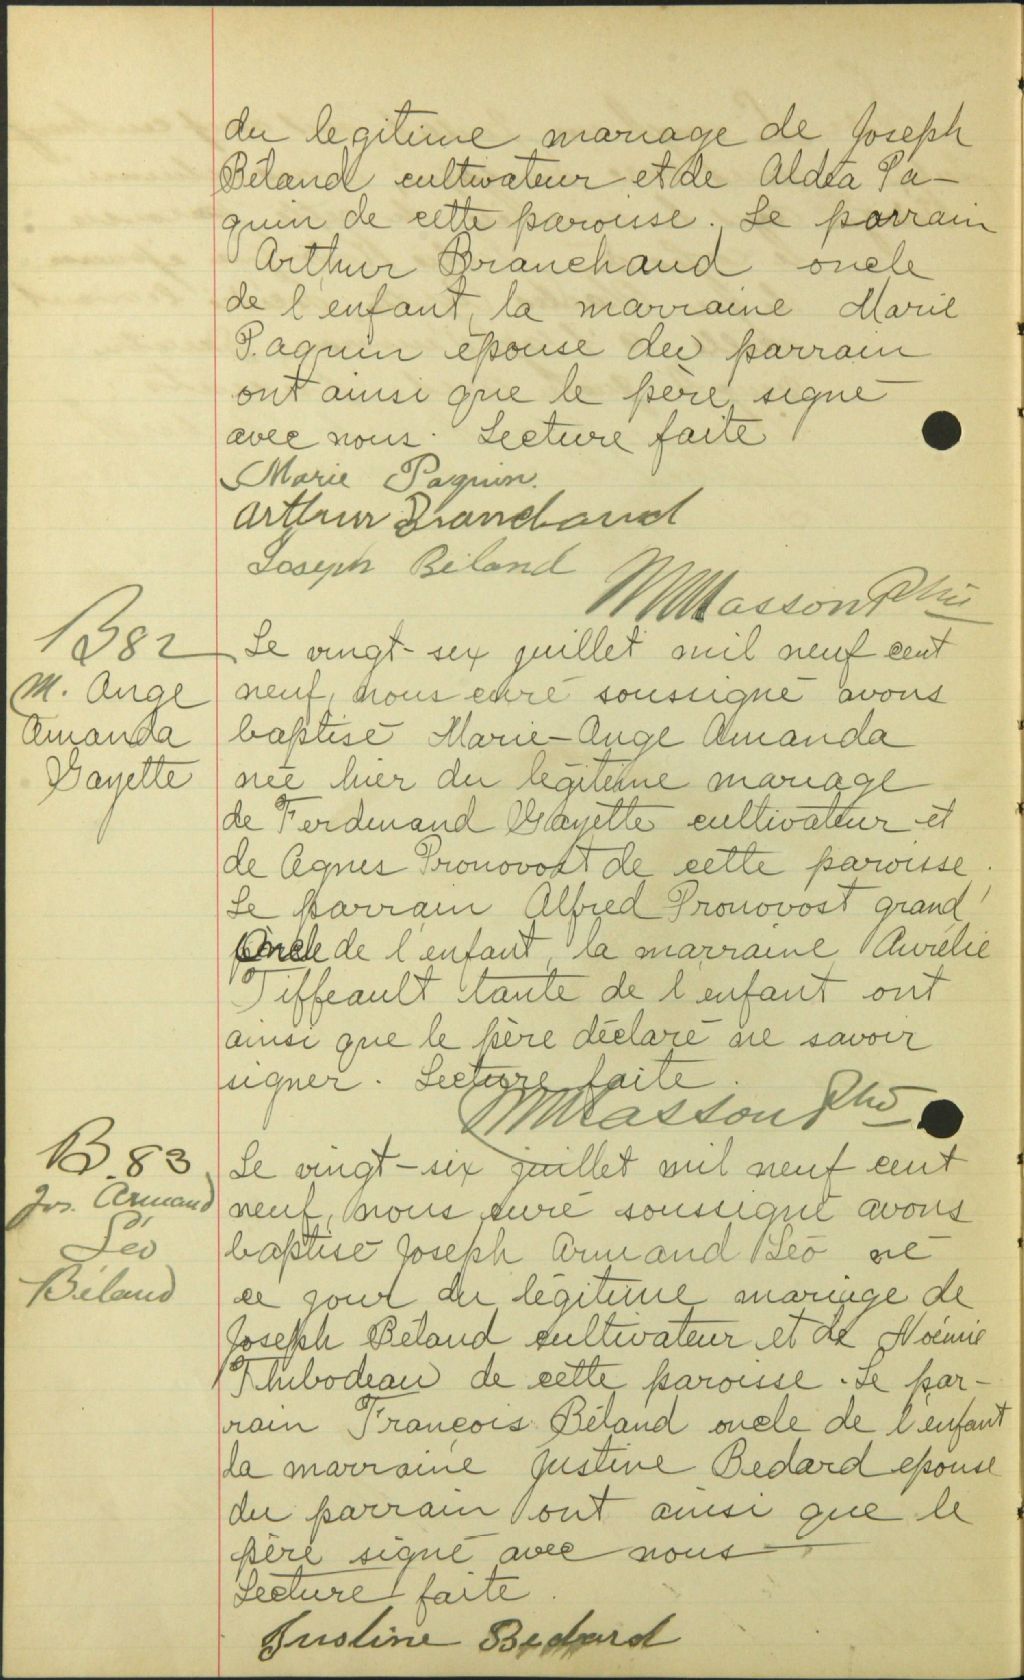 du legitime mariage de Joseph
Béland cultivateur et de Aldéa Pa-
quin de cette paroisse. Le parrain
Arthur Branchaud oncle
de l'enfant, la marraine Marie
Paquin épouse du parrain
ont ainsi que le père signé
avec nous. Lecture faite
Marie Paquin.
Arthur Branchaud
Joseph Béland
Masson Ptre
B 82
M. Ange
Amanda
Gayette
Le vingt-six juillet mil neuf cent
neuf, nous curé soussigné avons
baptisé Marie-Ange Amanda
née hier du légitime mariage
de Ferdinand Gayette cultivateur et
de Agnes Pronovost de cette paroisse.
Le parrain Alfred Pronovost grand'
Oncle de l'enfant, la marraine Aurélie
Tiffeault tante de l'enfant ont
ainsi que le père déclaré ne savoir
signer. Lecture faite.
Masson Ptre
B. 83
Jos. Armand
Léo
Béland
Le vingt-six juillet mil neuf cent
neuf, nous curé soussigné avons
baptisé Joseph Armand Léo né
ce jour du légitime mariage de
Joseph Béland cultivateur et de Noémie
Thibodeau de cette paroisse. Le par-
rain François Béland oncle de l'enfant
la marraine Justine Bedard epouse
du parrain ont ainsi que le
père signé avec nous
Lecture faite.
Justine Bedard